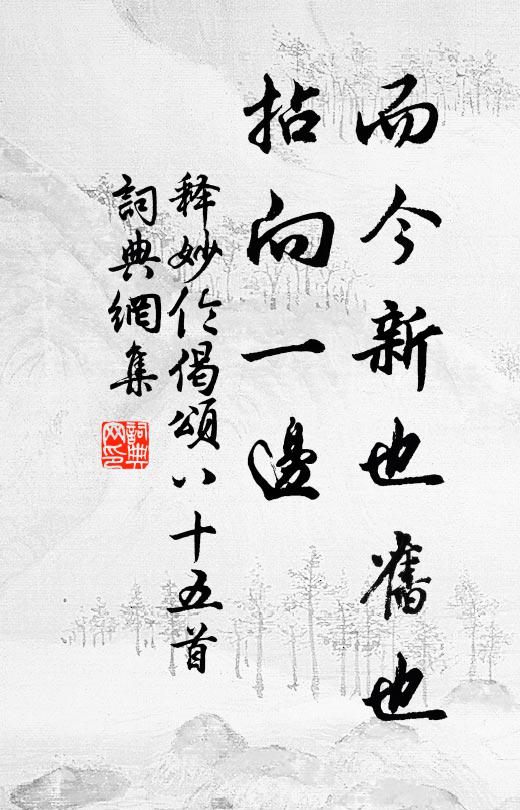 而今新也舊也
拈向一邊
释妙伦偈頌八十五首
詞典網集
詞典網印